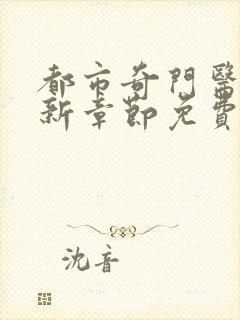 都市奇門醫
新章節免費
沈音